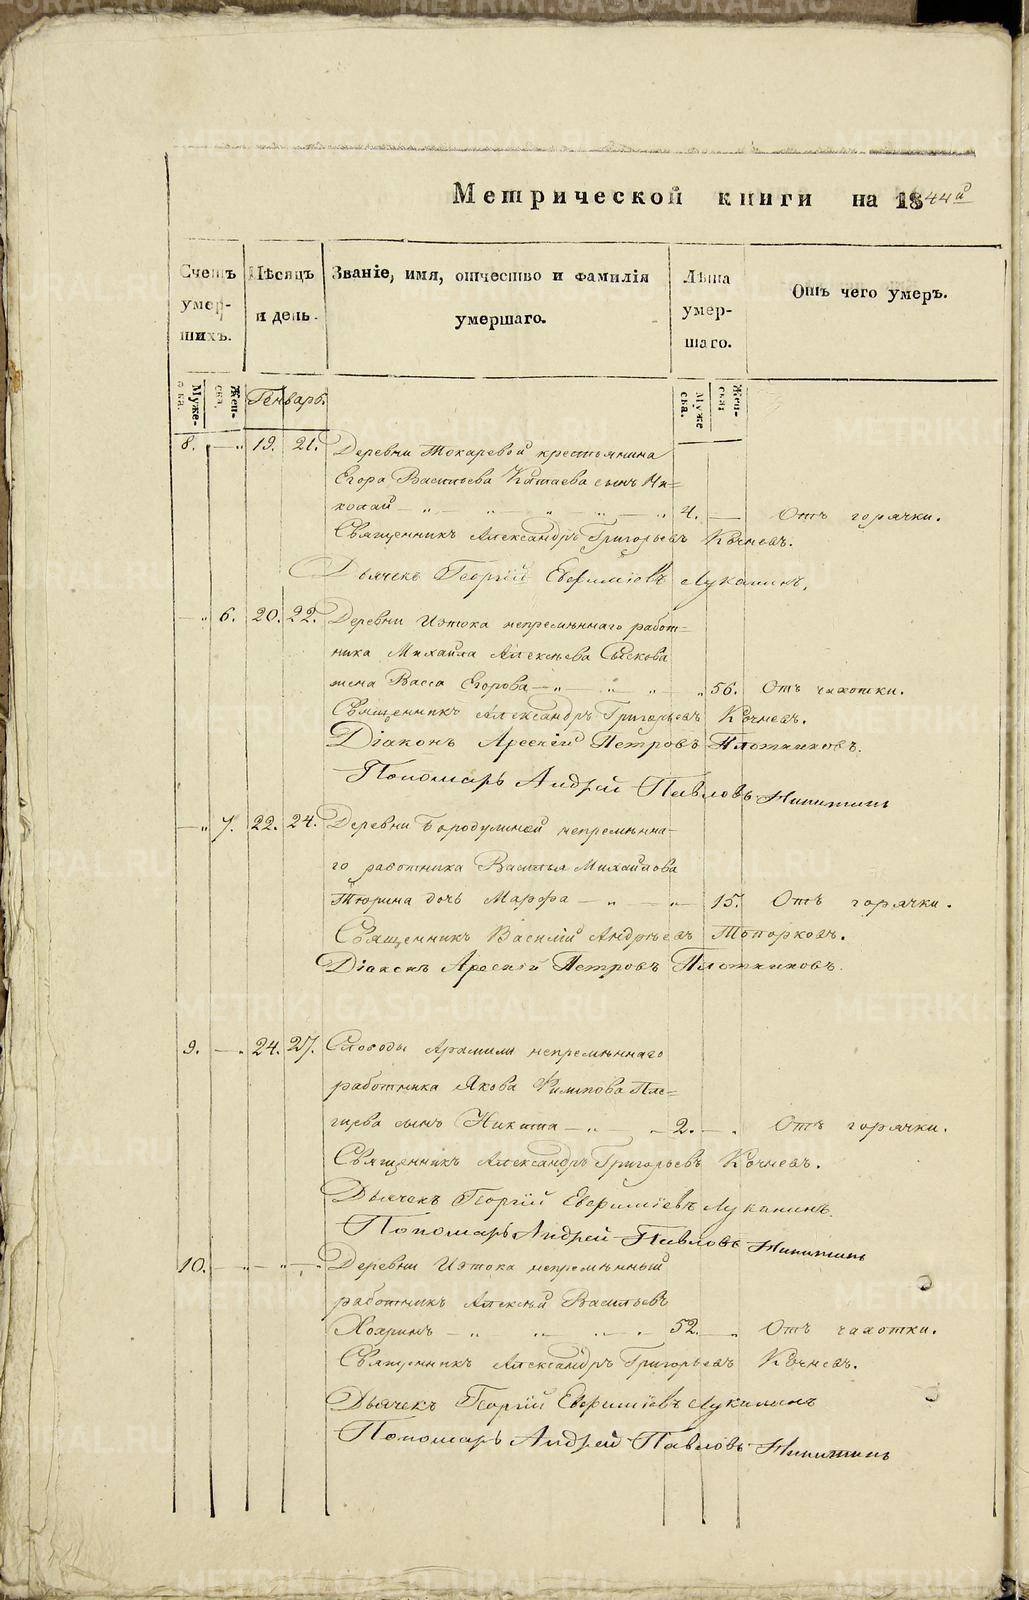 Метрической книги на 1844й
Счетъ умер- шихъ.
Мѣсяцъ и день.
Званіе, имя, отчество и фамилія умершаго.
Лѣта умер- шаго.
Отъ чего умеръ.
Муже- ска.
Жен- ска.
Генварь.
Муже ска.
Жен- ска.
8. — „ 19. 21. Деревни Токаревой крестьянина
Егора Васильева Китаева сынъ Ни=
колай — „ — „ — „ — „ — „ 4. — Отъ горячки.
Священникъ Александръ Григорьевъ Кочневъ.
Дьячекъ Георгій Евфиміевъ Лукининъ.
— „ 6. 20. 22. Деревни Истока непремѣннаго работ=
ника Михаила Алексѣева Сыскова
жена Васса Егорова — „ — „ — „ 56. Отъ чахотки.
Священникъ Александръ Григорьевъ Кочневъ.
Діаконъ Арсеній Петровъ Плотниковъ.
Пономарь Андрей Павловъ Никитинъ
— „ 7. 22. 24. Деревни Бородулиной непремѣнна-
го работника Василья Михайлова
Тюрина дочь Марфа — „ — „ 15. Отъ горячки.
Священникъ Василій Андреевъ Топорковъ.
Діаконъ Арсеній Петровъ Плотниковъ.
9. — „ 24. 27. Слободы Арамили непремѣннаго
работника Якова Филипова
сынъ Никита — „ — „ 2. — „ Отъ горячки.
Священникъ Александръ Григорьевъ Кочневъ.
Дьячекъ Георгій Евфиміевъ Лукининъ.
Пономарь Андрей Павловъ Никитинъ
10. — „ — „ — „ Деревни Истока непремѣнный
работникъ Алексѣй Васильевъ
— „ — „ — „ 52. — „ Отъ чахотки.
Священникъ Александръ Григорьевъ Кочневъ.
Дьячекъ Георгій Евфиміевъ Лукининъ
Пономарь Андрей Павловъ Никитинъ
METRIKI.GASO-URAL.RU